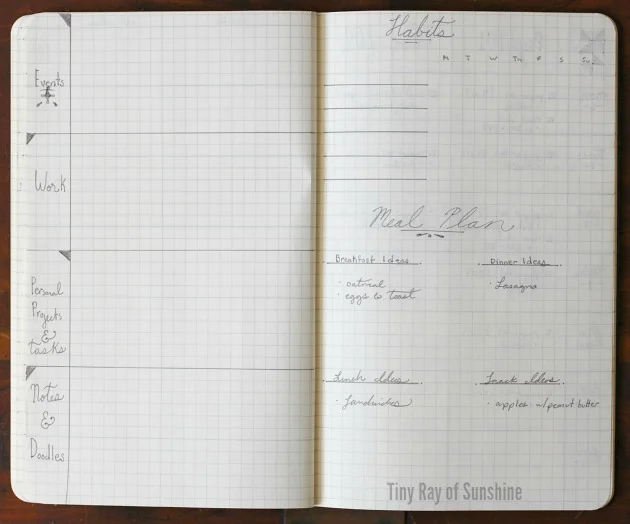 Events
Work
Personal
Projects
&
Tasks
Notes
&
Doodles
Habits
M T W Th F S Su
Meal Plan
Breakfast Ideas
· oatmeal
· eggs & toast
Dinner Ideas
· Lasagna
Lunch Ideas
· Sandwiches
Snack Ideas
· apples w/peanut butter
Tiny Ray of Sunshine